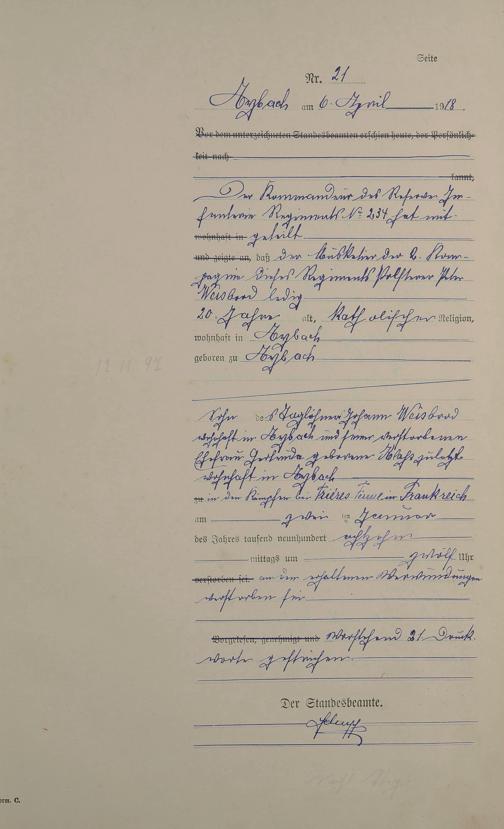 Seite
Nr. 21
Aybach am 6. April 1918
Vor dem unterzeichneten Standesbeamten erschien heute, der Persönlich-
keit nach
kannt,
Der Kommandeur des Reserve In-
fanterie Regiments No 234 hat mit-
wohnhaft in geteilt
und zeigte an, daß der Musketier der 2. Kom-
pagnie dieses Regiments Polsterer Peter
Weisbrod ledig
20 Jahre alt, katholischer Religion,
wohnhaft in Aybach
geboren zu Aybach
Sohn des Taglöhners Johann Weisbrod
wohnhaft in Aybach und seiner verstorbenen
Ehefrau Gertruda geborene zuletzt
wohnhaft in Aybach
zu in den Kämpfen bei in Frankreich
am zwei ten Januar
des Jahres tausend neunhundert achtzehn
mittags um zwölf Uhr
verstorben sei. an den erhaltenen Verwundungen
verstorben sei
Vorgelesen, genehmigt und Vorstehend 21 Druck-
worte gestrichen.
Der Standesbeamte.
orm. C.